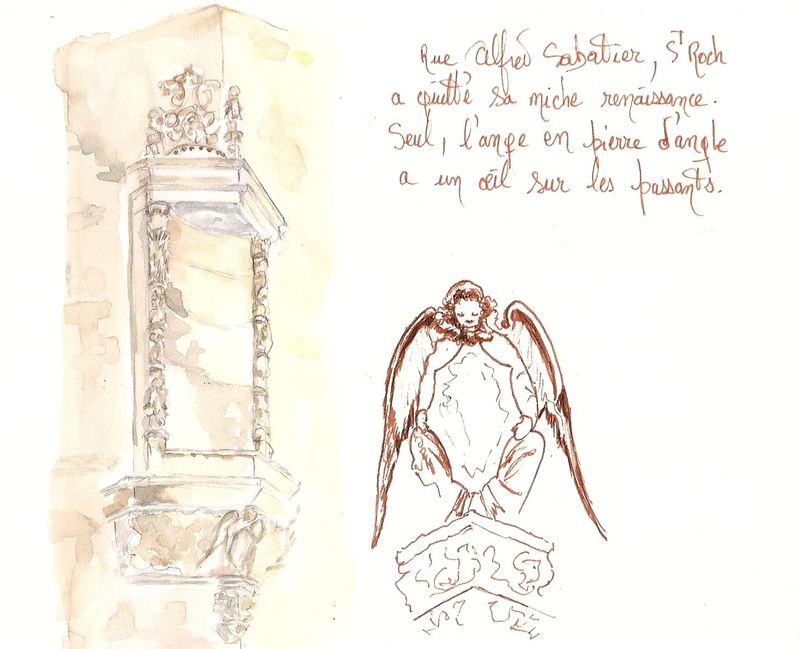 Rue Alfred Sabatier, St Roch
a quitté sa niche renaissance.
Seul, l'ange en pierre d'angle
a un œil sur les passants.